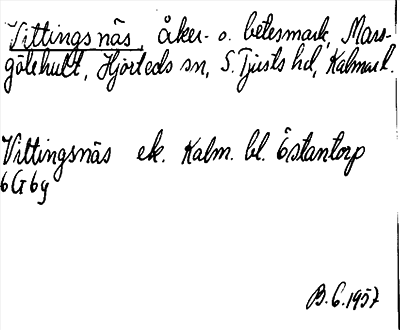 Vittings näs, åker- o. betesmark, Mars-
götehult, Hjorteds sn, S. Tjusts hd, Kalmar l.
Vittingsnäs ek. Kalm. bl. Östantorp
6G6g
B. G. 1957